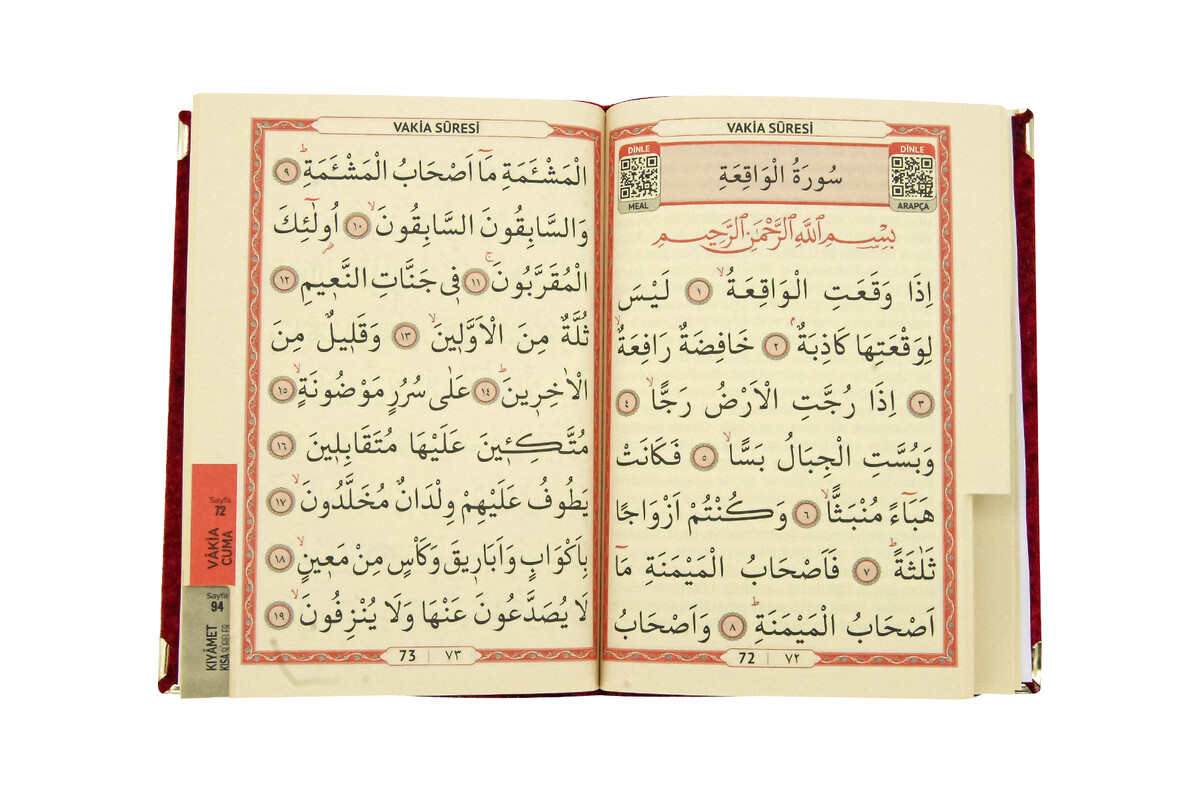 VAKİA SÛRESİ
DİNLE
MEAL
سُورَةُ الْوَاقِعَةِ
DİNLE
ARAPÇA
بِسْمِ اللَّهِ الرَّحْمٰنِ الرَّحِيمِ
اِذَا وَقَعَتِ الْوَاقِعَةُۙ ﴿١﴾ لَيْسَ
لِوَقْعَتِهَا كَاذِبَةٌۢ ﴿٢﴾ خَافِضَةٌ رَافِعَةٌۙ
﴿٣﴾ اِذَا رُجَّتِ الْاَرْضُ رَجًّاۙ ﴿٤﴾
وَبُسَّتِ الْجِبَالُ بَسًّاۙ ﴿٥﴾ فَكَانَتْ
هَبَٓاءً مُنْبَثًّاۙ ﴿٦﴾ وَكُنْتُمْ اَزْوَاجًا
ثَلٰثَةًۜ ﴿٧﴾ فَاَصْحَابُ الْمَيْمَنَةِ مَٓا
اَصْحَابُ الْمَيْمَنَةِۜ ﴿٨﴾ وَاَصْحَابُ
72 | ٧٢
VAKİA SÛRESİ
الْمَشْـَٔمَةِ مَٓا اَصْحَابُ الْمَشْـَٔمَةِۜ ﴿٩﴾
وَالسَّابِقُونَ السَّابِقُونَۙ ﴿١٠﴾ اُولٰٓئِكَ
الْمُقَرَّبُونَۚ ﴿١١﴾ فِي جَنَّاتِ النَّعِيمِ ﴿١٢﴾
ثُلَّةٌ مِنَ الْاَوَّلِينَۙ ﴿١٣﴾ وَقَلِيلٌ مِنَ
الْاٰخِرِينَۜ ﴿١٤﴾ عَلٰى سُرُرٍ مَوْضُونَةٍۙ ﴿١٥﴾
مُتَّكِـِٔينَ عَلَيْهَا مُتَقَابِلِينَ ﴿١٦﴾
يَطُوفُ عَلَيْهِمْ وِلْدَانٌ مُخَلَّدُونَۙ ﴿١٧﴾
بِاَكْوَابٍ وَاَبَارِيقَ وَكَأْسٍ مِنْ مَعِينٍۙ ﴿١٨﴾
لَا يُصَدَّعُونَ عَنْهَا وَلَا يُنْزِفُونَۙ ﴿١٩﴾
73 | ٧٣
Sayfa
72
VÂKİA
CUMA
Sayfa
94
KIYÂMET
KISA SÛRELER